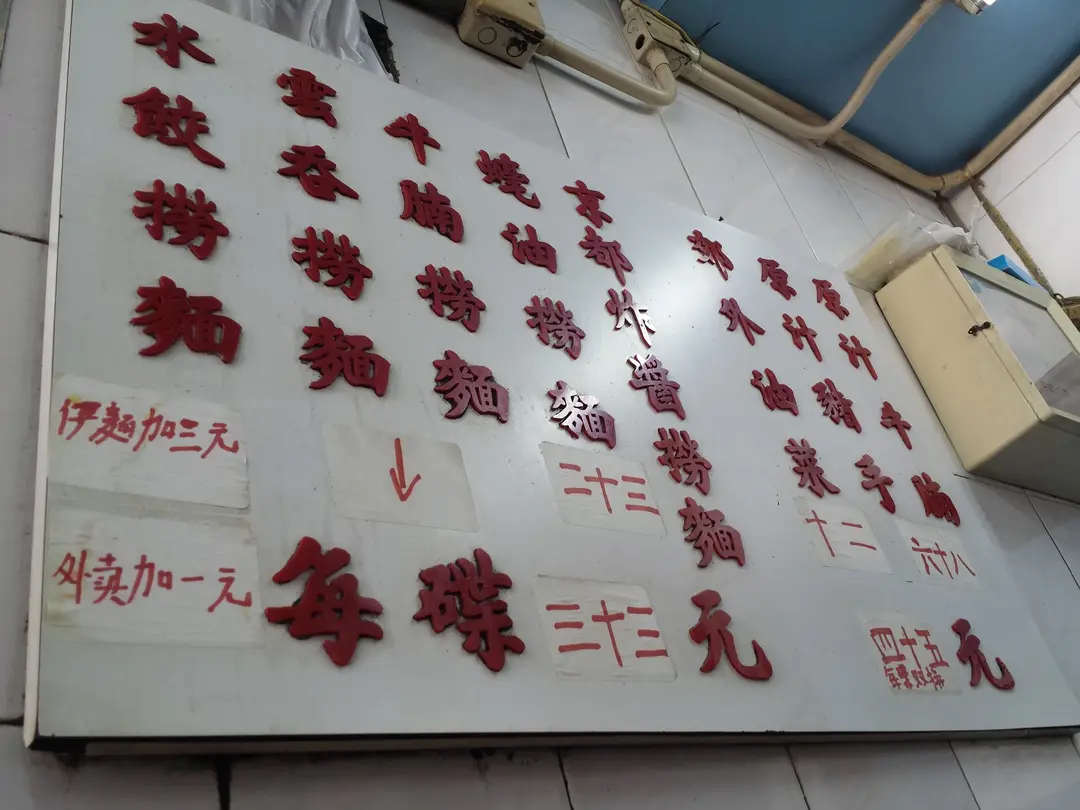 水餃撈麵
雲吞撈麵
牛腩撈麵
蠔油撈麵
京都炸醬撈麵
郊外油菜
原汁豬手
原汁牛腩
伊麵加三元
↓
二十三
十二
六十八
外卖加一元
每碟三十三元
四十五元